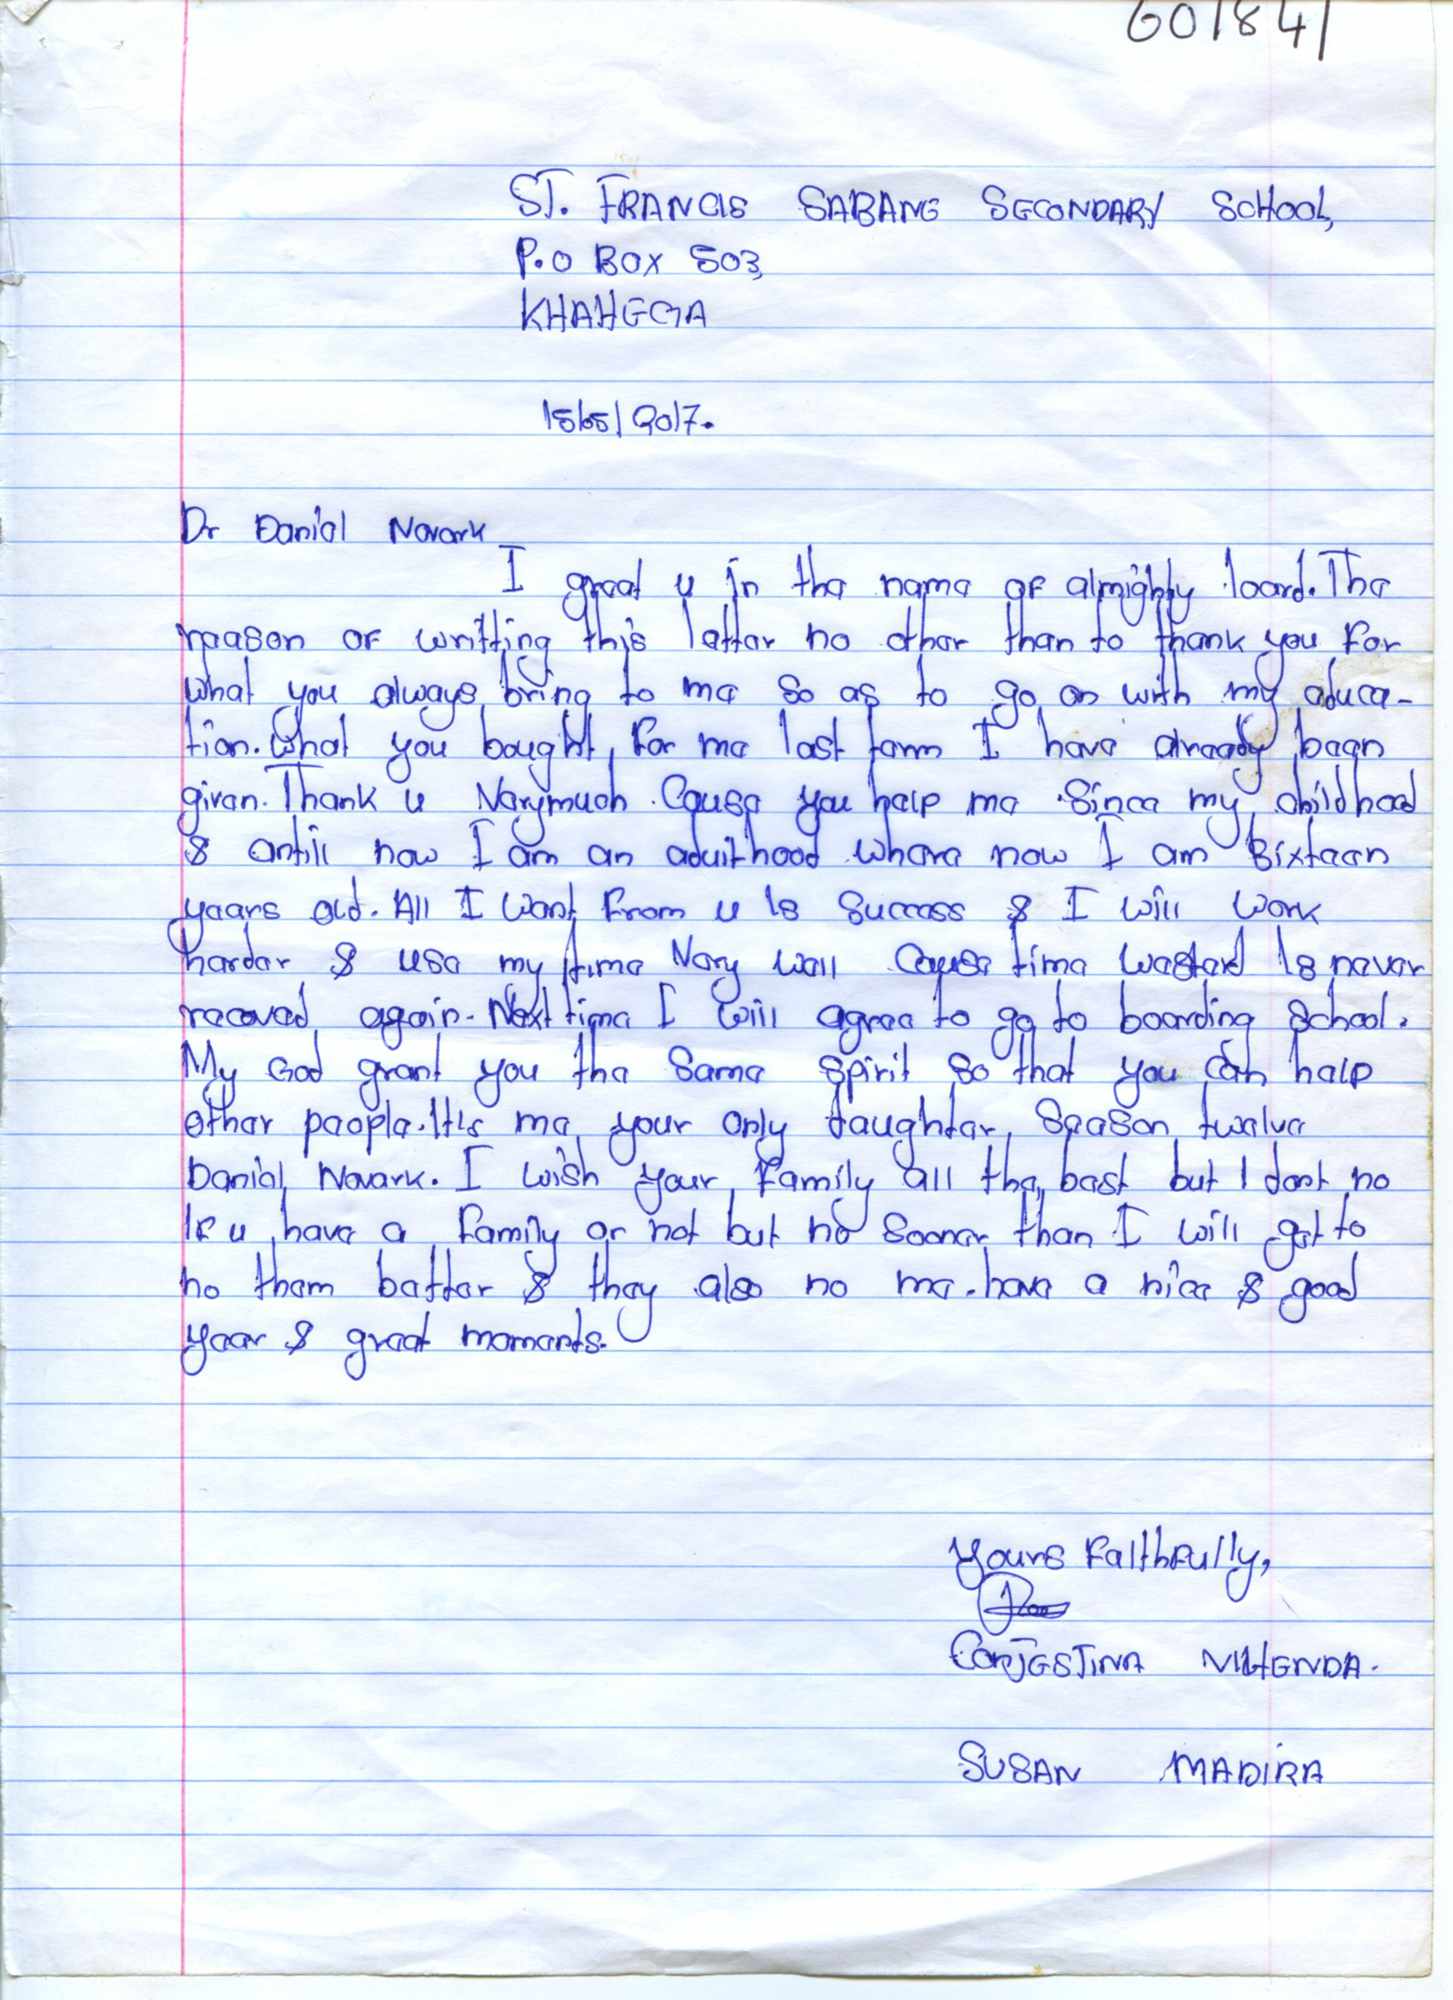 601841
ST. FRANCIS SABANG SECONDARY SCHOOL,
P.O BOX 503,
KHAHEGA
15/5/2017.
Dr Daniel Novark
I great u in the name of almighty loard. The
reason of writting this letter no other than to thank you for
what you always bring to me so as to go on with my educa-
tion. What you bought for me last term I have already been
given. Thank u Verymuch. Cause you help me since my childhood
& antill now I am an adulthood where now I am sixteen
years old. All I want from u is success & I will work
harder & use my time very well cause time wasted is never
recoved again. Next time I will agree to go to boarding school.
My God grant you the same spirit so that you can help
other people. It's me your only daughter, Season twelve
Daniel Novark. I wish your family all the best but I dont no
if u have a family or not but no sooner than I will get to
no them better & they also no me. have a nice & good
year & great moments.
Yours faithfully,
CONJESTINA
SUSAN MADIRA